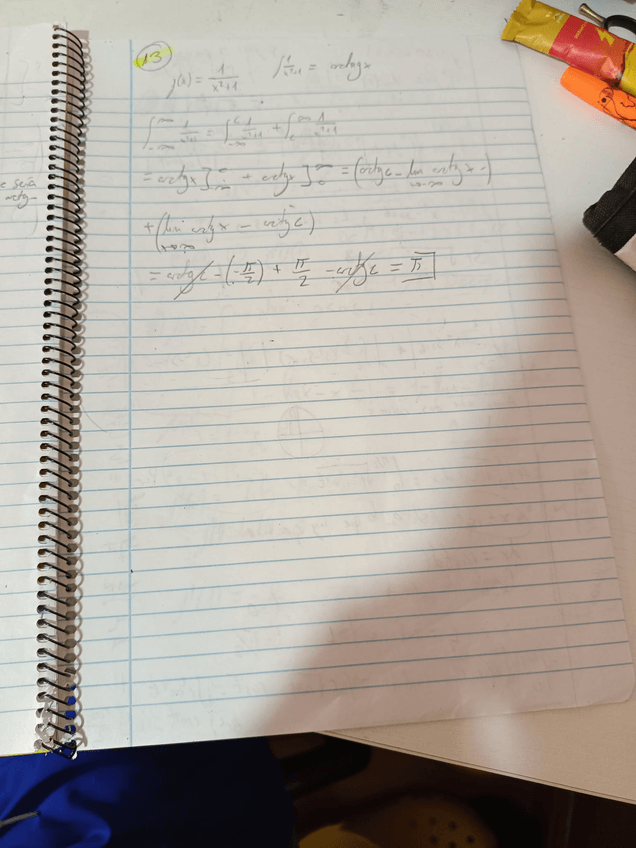 13
f(x) = 1/(x²+1)   ∫ 1/(x²+1) = arctg x
∫_{-∞}^{∞} 1/(x²+1) = ∫_{-∞}^{c} 1/(x²+1) + ∫_{c}^{∞} 1/(x²+1)
= arctg x]_{-∞}^{c} + arctg x]_{c}^{∞} = (arctg c - lim_{x→-∞} arctg x)
+ (lim_{x→∞} arctg x - arctg c)
= arctg c - (-π/2) + π/2 - arctg c = π